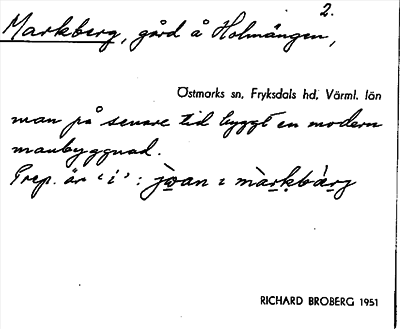 2.
Markberg, gård å Holmängen,
Östmarks sn, Fryksdals hd, Värml. län
man på senare tid byggt en modern
manbyggnad.
Prep. är 'i': jo̱an ɪ màṛkbárg
RICHARD BROBERG 1951